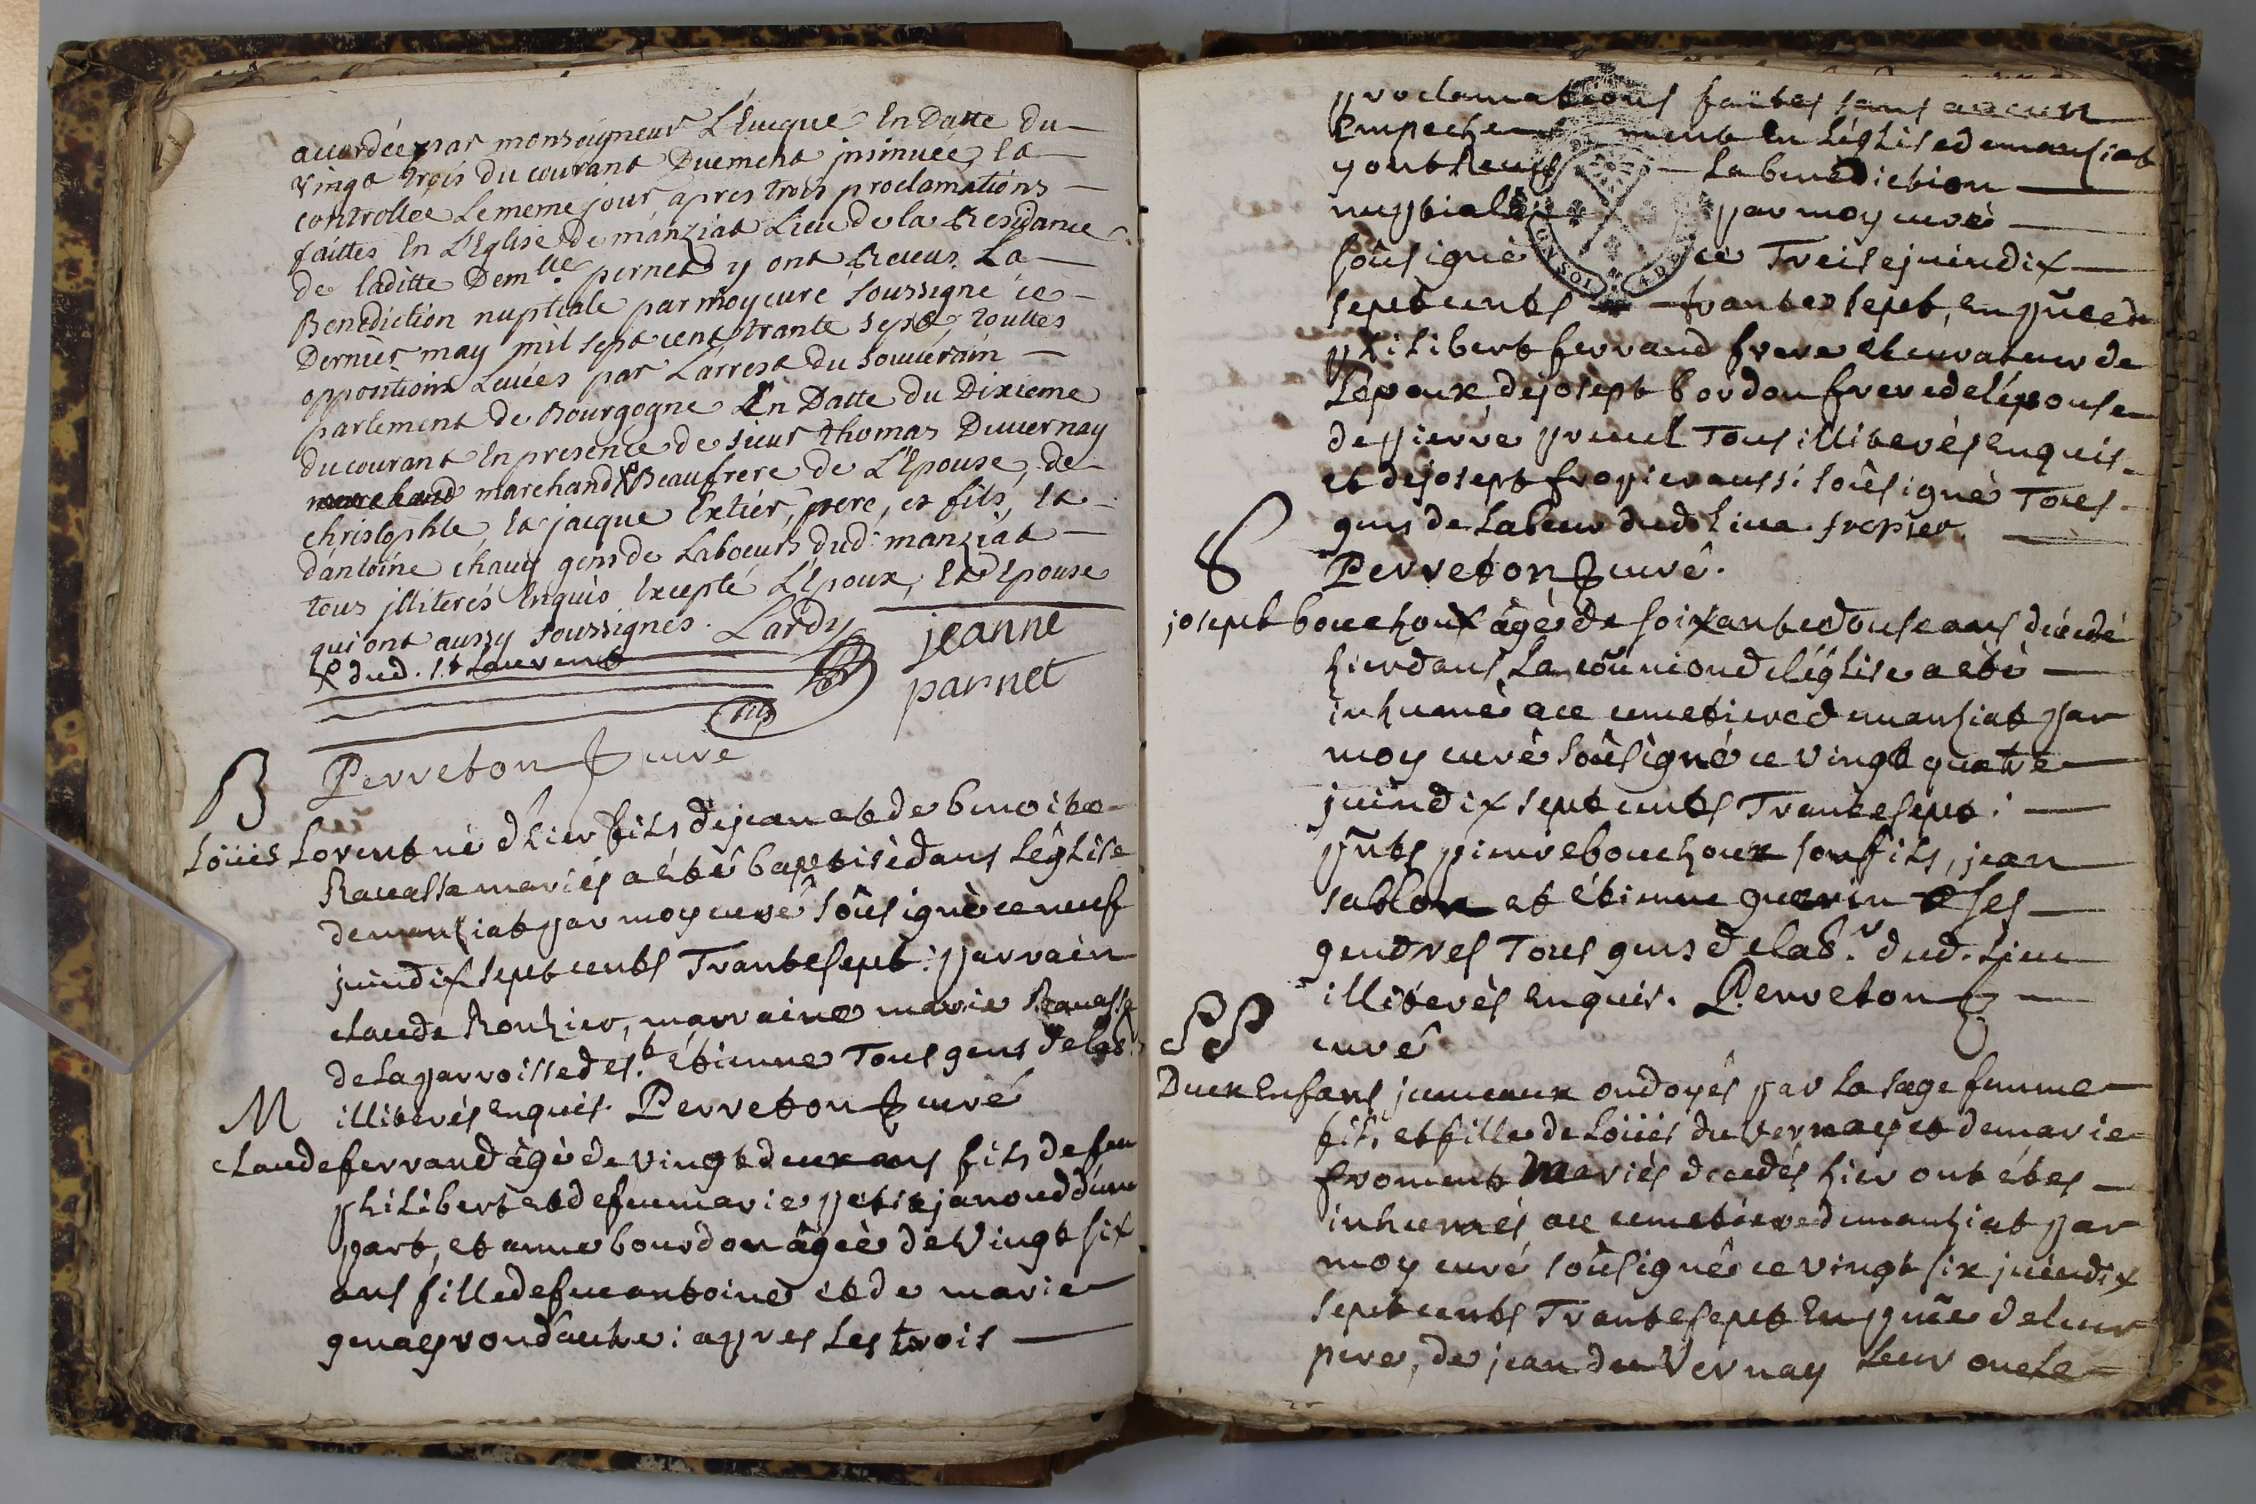 accordée par monseigneur L'Eveque En Datte du
vingt trois du courant Duement jnsinuée, Et
controllee Le meme jour apres trois proclamations
faittes En L'Eglise de manziat Lieu de la Residance
de laditte Dem.lle pernet y ont Receus La
Benediction nuptiale par moy curé soussigné ce
Dernier may mil sept cent trante sept, touttes
oppositions Levées par L'arrest du souverain
parlement de Bourgogne En Datte du Dixieme
du courant En presence de sieur thomas Duvernay
marchand Beaufrere de L'Epouse, de
christophle, Et jacque Extier, pere, et fils, Et
d'antoine chavy gens de Laboeurs dud. manziat
tous jlliterés Enquis Excepté L'Epoux, Et L'Epouse
qui ont aussy soussignés. Lardy
jeanne
dud. st Laurent
parnet
Perreton curé
B
Loüis Lorent né d'hier fils de jean et de benoite
Ravassa mariés a été baptisé dans L'église
de manziat par moy curé soûsigné ce neuf
juin dix sept cents Trante sept: parrain
claude Ronzier, marraine marie Ravassa
de La parroisse de s.t Etienne Tous gens de lab.
illiterés enquis. Perreton curé
M
claude ferrand âgé de vingt deux ans fils de feu
philibert et de feu marie petit janond d'une
part, et anne bourdon âgée de vingt six
ans fille de feu antoine et de marie
genas d'autre: apres Les trois
proclamations faittes sans aucun
empechement en L'église de manziat
y ont Receus La benediction
nuptiale par moy curé
soûsigné ce Treise juin dix
sept cents trante sept, en pñce de
philibert ferrand frere et curateur de
L'epoux, de josept bordon frere de l'épouse
de pierre previl Tous illiterés enquis
et de josept fropier aussi soûsigné Tous
gens de Labeur dud. Lieu. fropier
Perreton curé.
S
josept bouchoux âgé de soixante douse ans décédé
hier dans La cõmunion de l'église a été
inhumé au cemetiere de manziat par
moy curé soûsigné ce vingt quatre
juin dix sept cents Trante sept:
pñts pierre bouchoux son fils, jean
sablon et étienne guerin ses
gendres Tous gens de lab.r dud. Lieu
illiterés enquis. Perreton
curé
SS
Deux Enfans jumeaux ondoyés par La sage femme
fils, et fille de Loüis du vernay et de marie
froment mariés decedés hier ont étés
inhumés au cemetiere de manziat par
moy curé soûsigné ce vingt six juin dix
sept cents Trante sept En pñce de leur
pere, de jean du Vernay Leur oncle